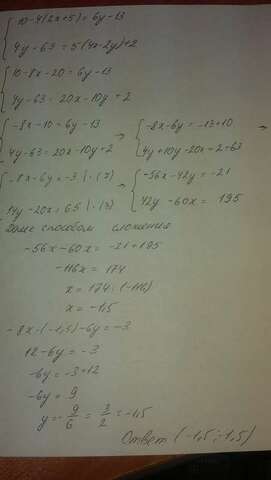 10-4(2x+5)=6y-13
4y-63=5(4x-2y)+2
10-8x-20=6y-13
4y-63=20x-10y+2
-8x-10=6y-13 → -8x-6y=-13+10 →
4y-63=20x-10y+2 4y+10y-20x=2+63
-8x-6y=-3 |·(7) → -56x-42y=-21
14y-20x=65 |·(3) 42y-60x=195
Далее способом сложения
-56x-60x=-21+195
-116x=174
x=174:(-116)
x=-1,5
-8x·(-1,5)-6y=-3
12-6y=-3
-6y=-3+12
-6y=9
y=-9/6=3/2=-1,5
Ответ (-1,5;-1,5)